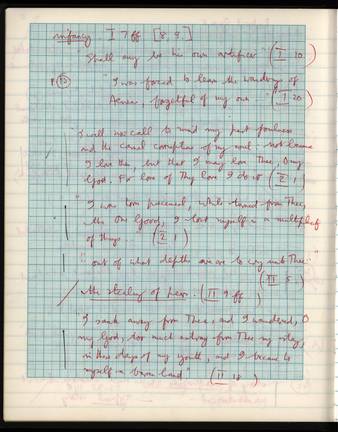 infancy I 7 ff [8, 9.]
"Shall any be his own artificer" (I 10
"I was forced to learn the wanderings of
Aeneas, forgetful of my own" (I 20)
"I will now call to mind my past foulness
and the carnal corruptions of my soul: not because
I love them, but that I may love Thee, O my
God. For love of Thy love I do it (II 1)
"I was torn piecemeal, while turned from Thee,
the One Good, I lost myself in a multiplicity
of things... (II 1)
"out of what depths we are to cry unto Thee."
(II 5)
the stealing of pears. (II 9 ff)
"I sank away from Thee, and I wandered, O
my God, too much astray from Thee my stay,
in these days of my youth, and I became to
myself a barren land" (II 18)